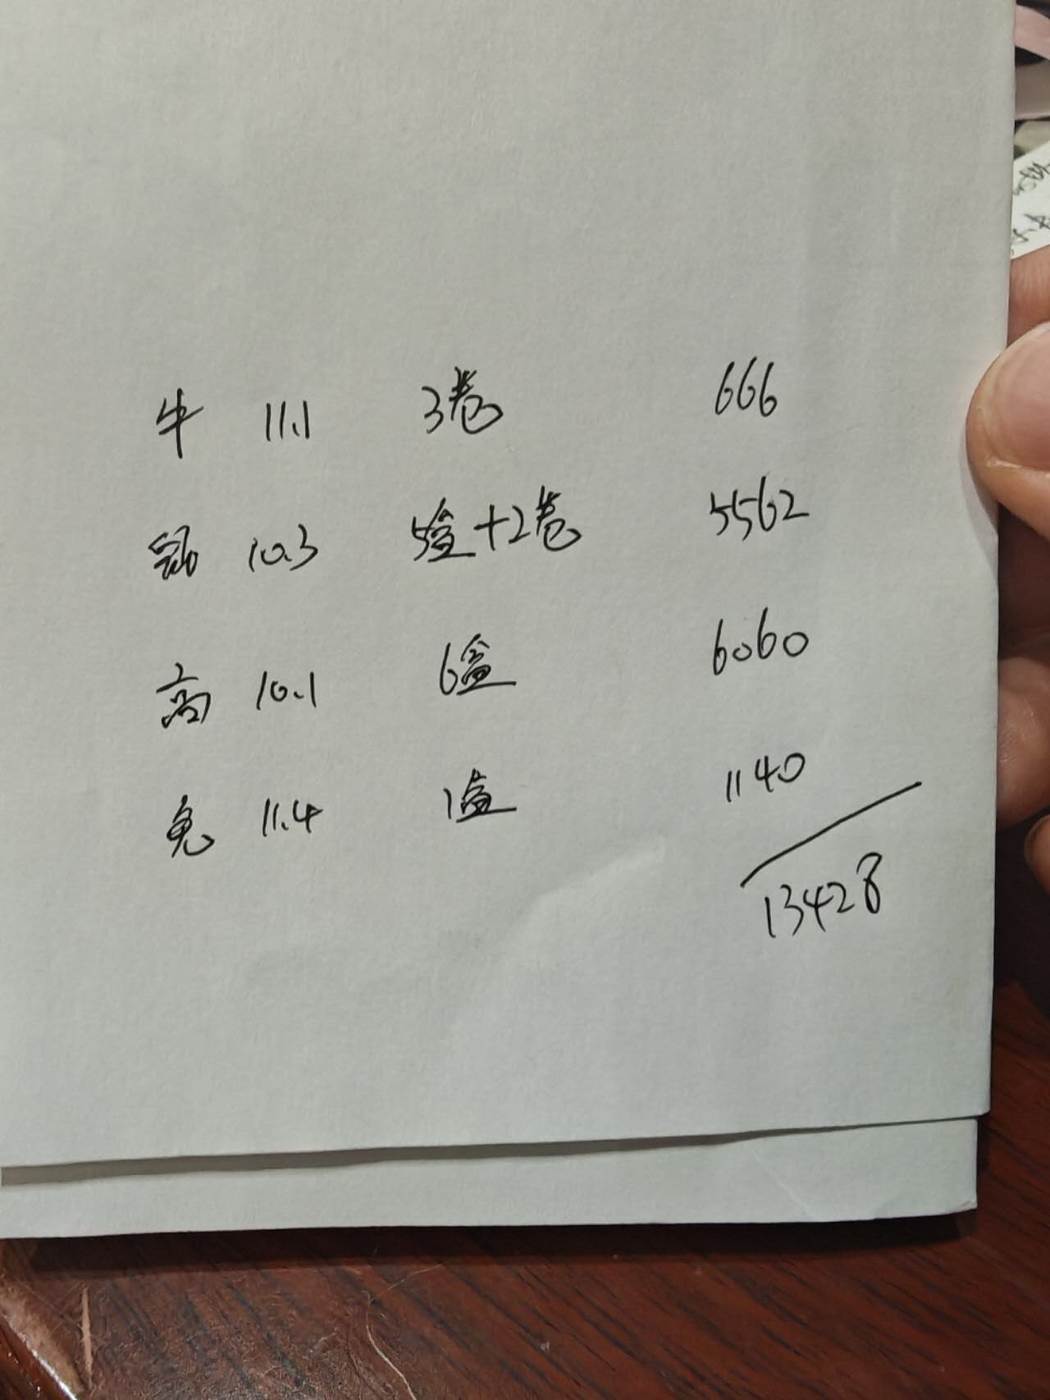 牛 11.1 3卷 666
10.3 5盒+2卷 5562
高 10.1 6盒 6060
兔 11.4 1盒 1140
13428